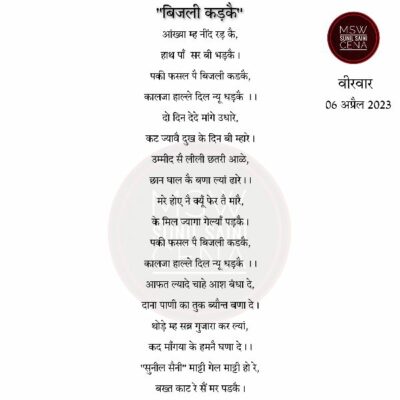 "बिजली कड़कै"
MSW
SUNIL SAINI
CENA
वीरवार
06 अप्रैल 2023
आंख्या म्ह नींद रड़ कै,
हाथ पाँ सर बी भड़कै ।
पकी फसल पै बिजली कडकै,
कालजा हाल्ले दिल न्यू धड़कै ।।
दो दिन देदे मांगे उधारे,
कट ज्यावै दुख के दिन बी म्हारे ।
उम्मीद सै लीली छतरी आळे,
छान घाल कै बणा ल्यां ढारे ।।
मरे होए नै क्यूँ फेर तै मारै,
के मिल ज्यागा गेल्याँ पड़कै ।
पकी फसल पै बिजली कडकै,
कालजा हाल्ले दिल न्यू धड़कै ।।
आफत ल्यादे चाहे आश बंधा दे,
दाना पाणी का तुक ब्यौन्त बणा दे ।
थोड़े म्ह सब्र गुजारा कर ल्यां,
कद माँगया के हमनै घणा दे ।।
"सुनील सैनी" माट्टी गेल माट्टी हो रे,
बख्त काट रे सैं मर पडकै ।
MSW
SUNIL SAINI
CENA